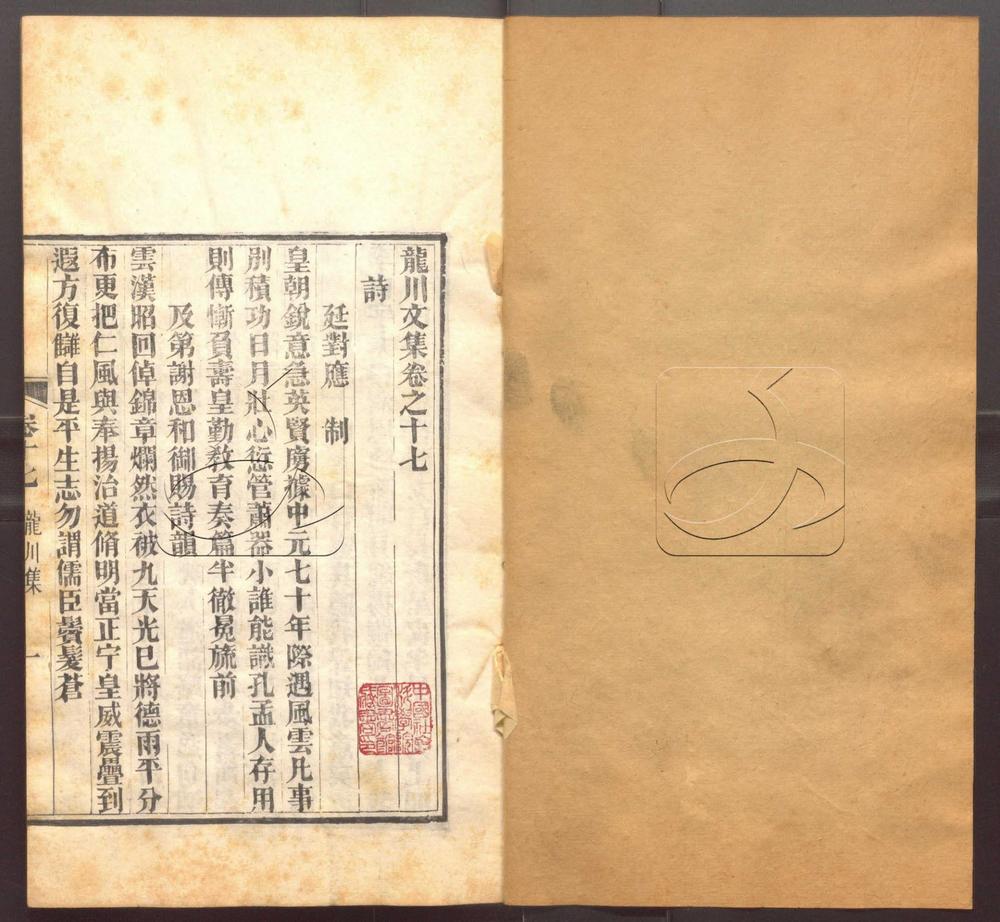 龍川文集卷之十七
詩
廷對應　制
皇朝銳意急英賢虜據中元七十年際遇風雲凡事
別積功日月壯心愆管蕭器小誰能識孔孟人存用
則傳慚負壽皇勤教育奏篇半徹冕旒前
及第謝恩和御賜詩韻
雲漢昭回倬錦章爛然衣被九天光已將德雨平分
布更把仁風與奉揚治道脩明當正宁皇威震疊到
遐方復讎自是平生志勿謂儒臣鬢髮蒼
卷十七　龍川集　一